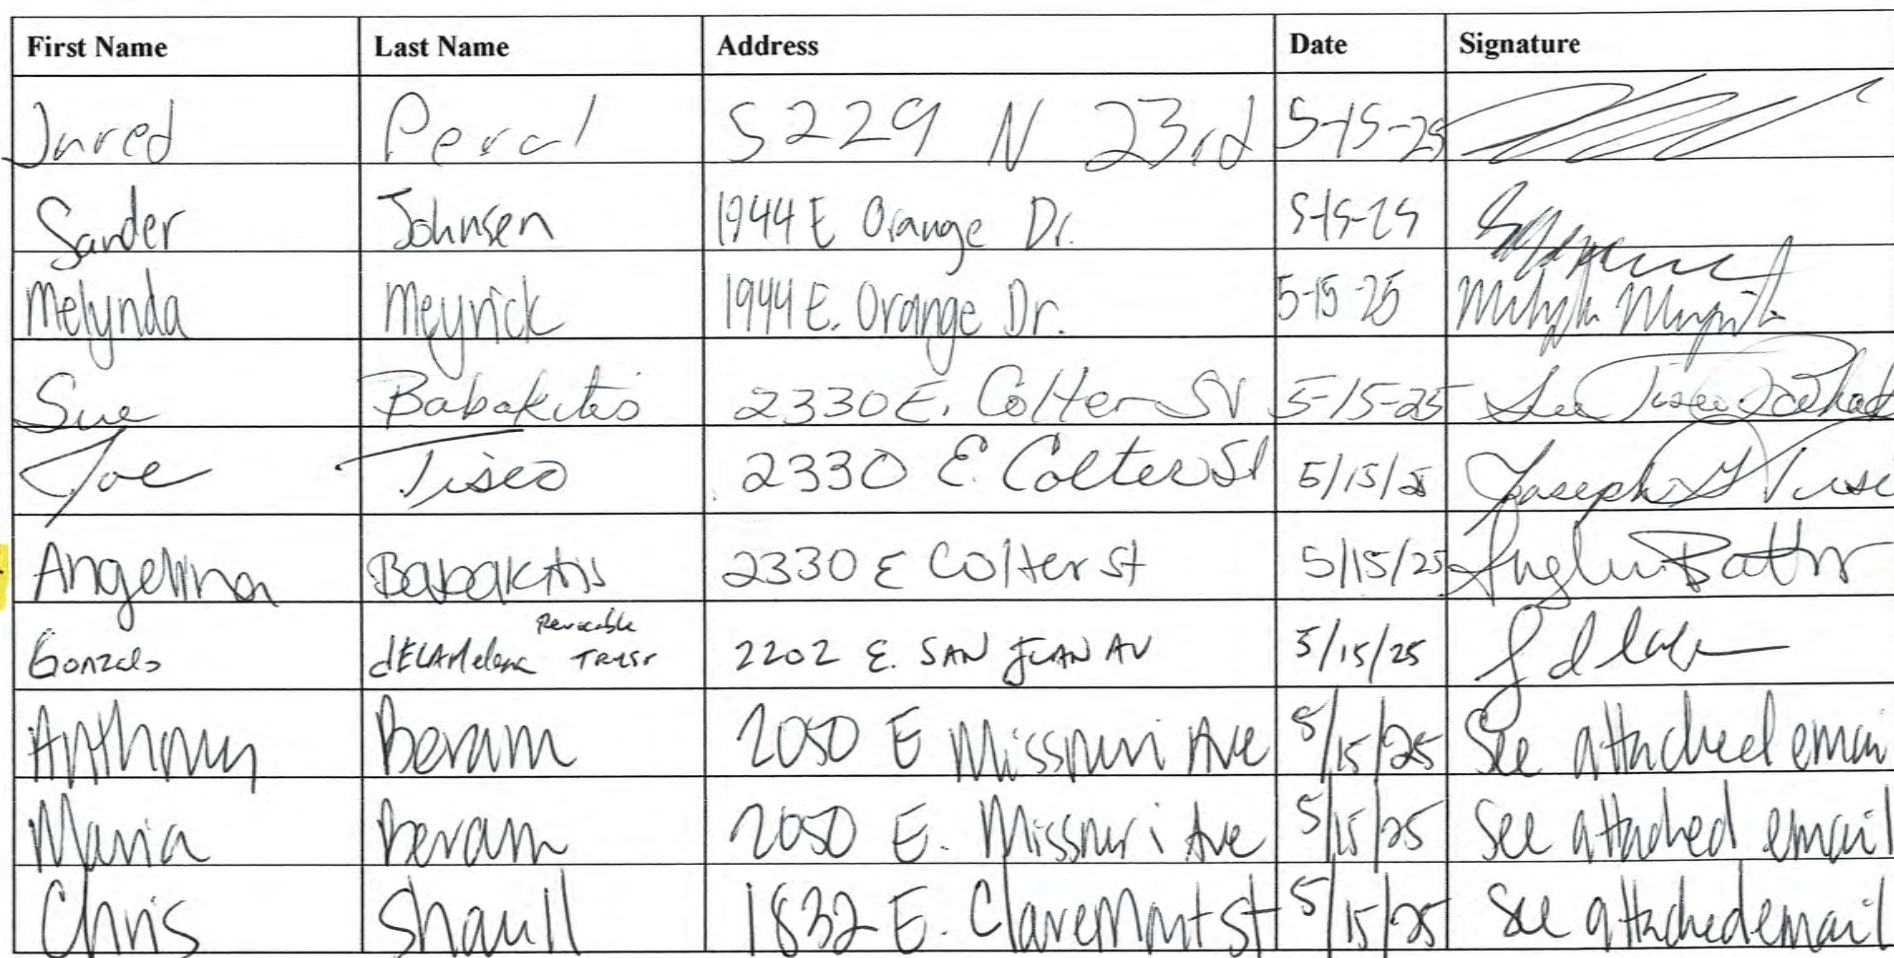 First Name Last Name Address Date Signature
Jared Peral 5229 N 23rd 5-15-25
Sander Johnsen 1944 E Orange Dr. 5-15-25
Melynda Meyrick 1944 E. Orange Dr. 5-15-25
Sue Babakitis 2330 E. Colter St 5-15-25
Joe Tiseo 2330 E. Colter St 5/15/25 Joseph
Angelina Babakitis 2330 E Colter St 5/15/25
Revocable
Gonzalo dELAMelena TRUST 2202 E. SAN JUAN AV 5/15/25
Anthony Beram 2050 E Missouri Ave 5/15/25 See attached emai
Maria Beram 2050 E. Missouri Ave 5/15/25 See attached email
Chris Shaull 1832 E. Claremont St 5/15/25 See attached email